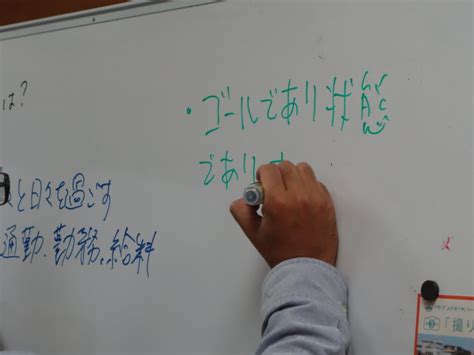 は?
・ゴールであり状態
であり
と日々を過ごす
通勤、勤務、給料
「撮り